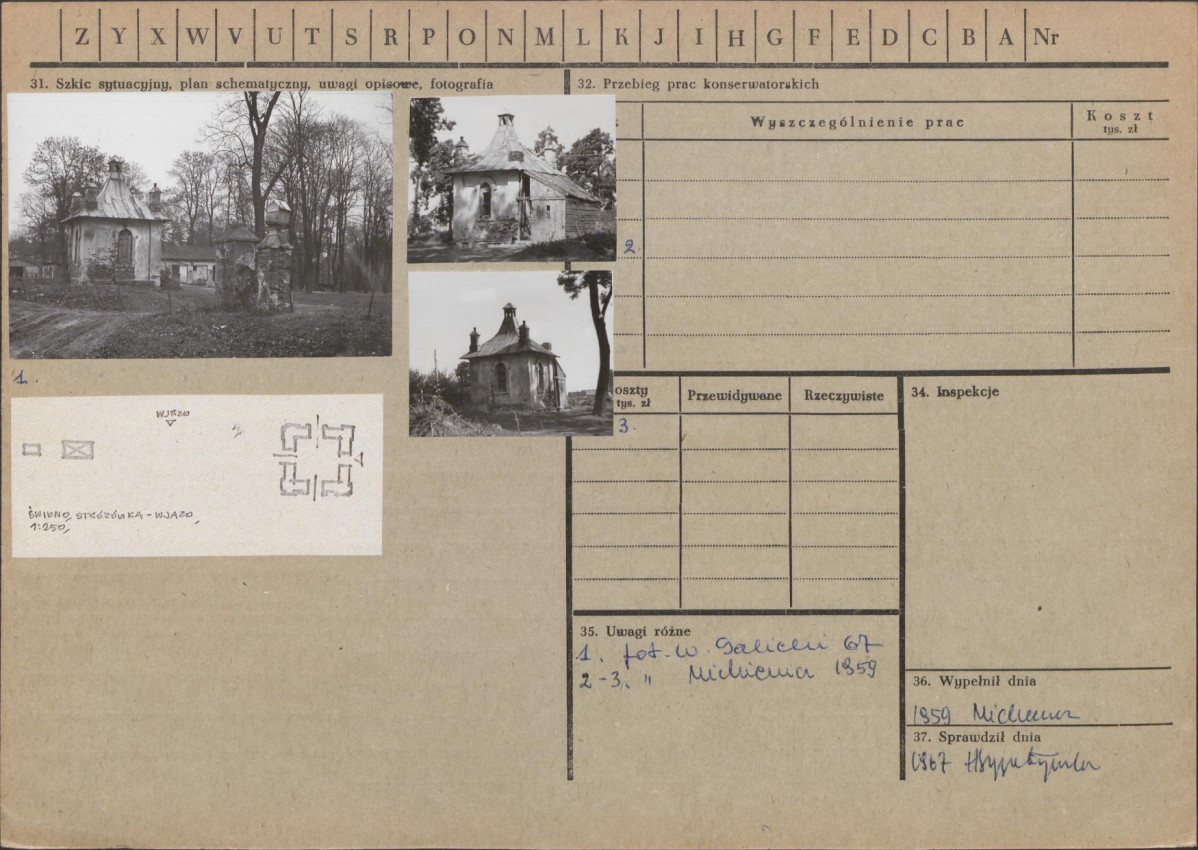 Z Y X W V U T S R P O N M L K J I H G F E D C B A Nr
31. Szkic sytuacyjny, plan schematyczny, uwagi opisowe, fotografia
1.
2.
3.
WJAZD
STRÓŻÓWKA - WJAZD,
1:250,
32. Przebieg prac konserwatorskich
Wyszczególnienie prac
Koszt
tys. zł
oszty
tys. zł
Przewidywane
Rzeczywiste
34. Inspekcje
35. Uwagi różne
1. fot. W. Galicki 67
2-3. " 1959
36. Wypełnił dnia
1959
37. Sprawdził dnia
1967